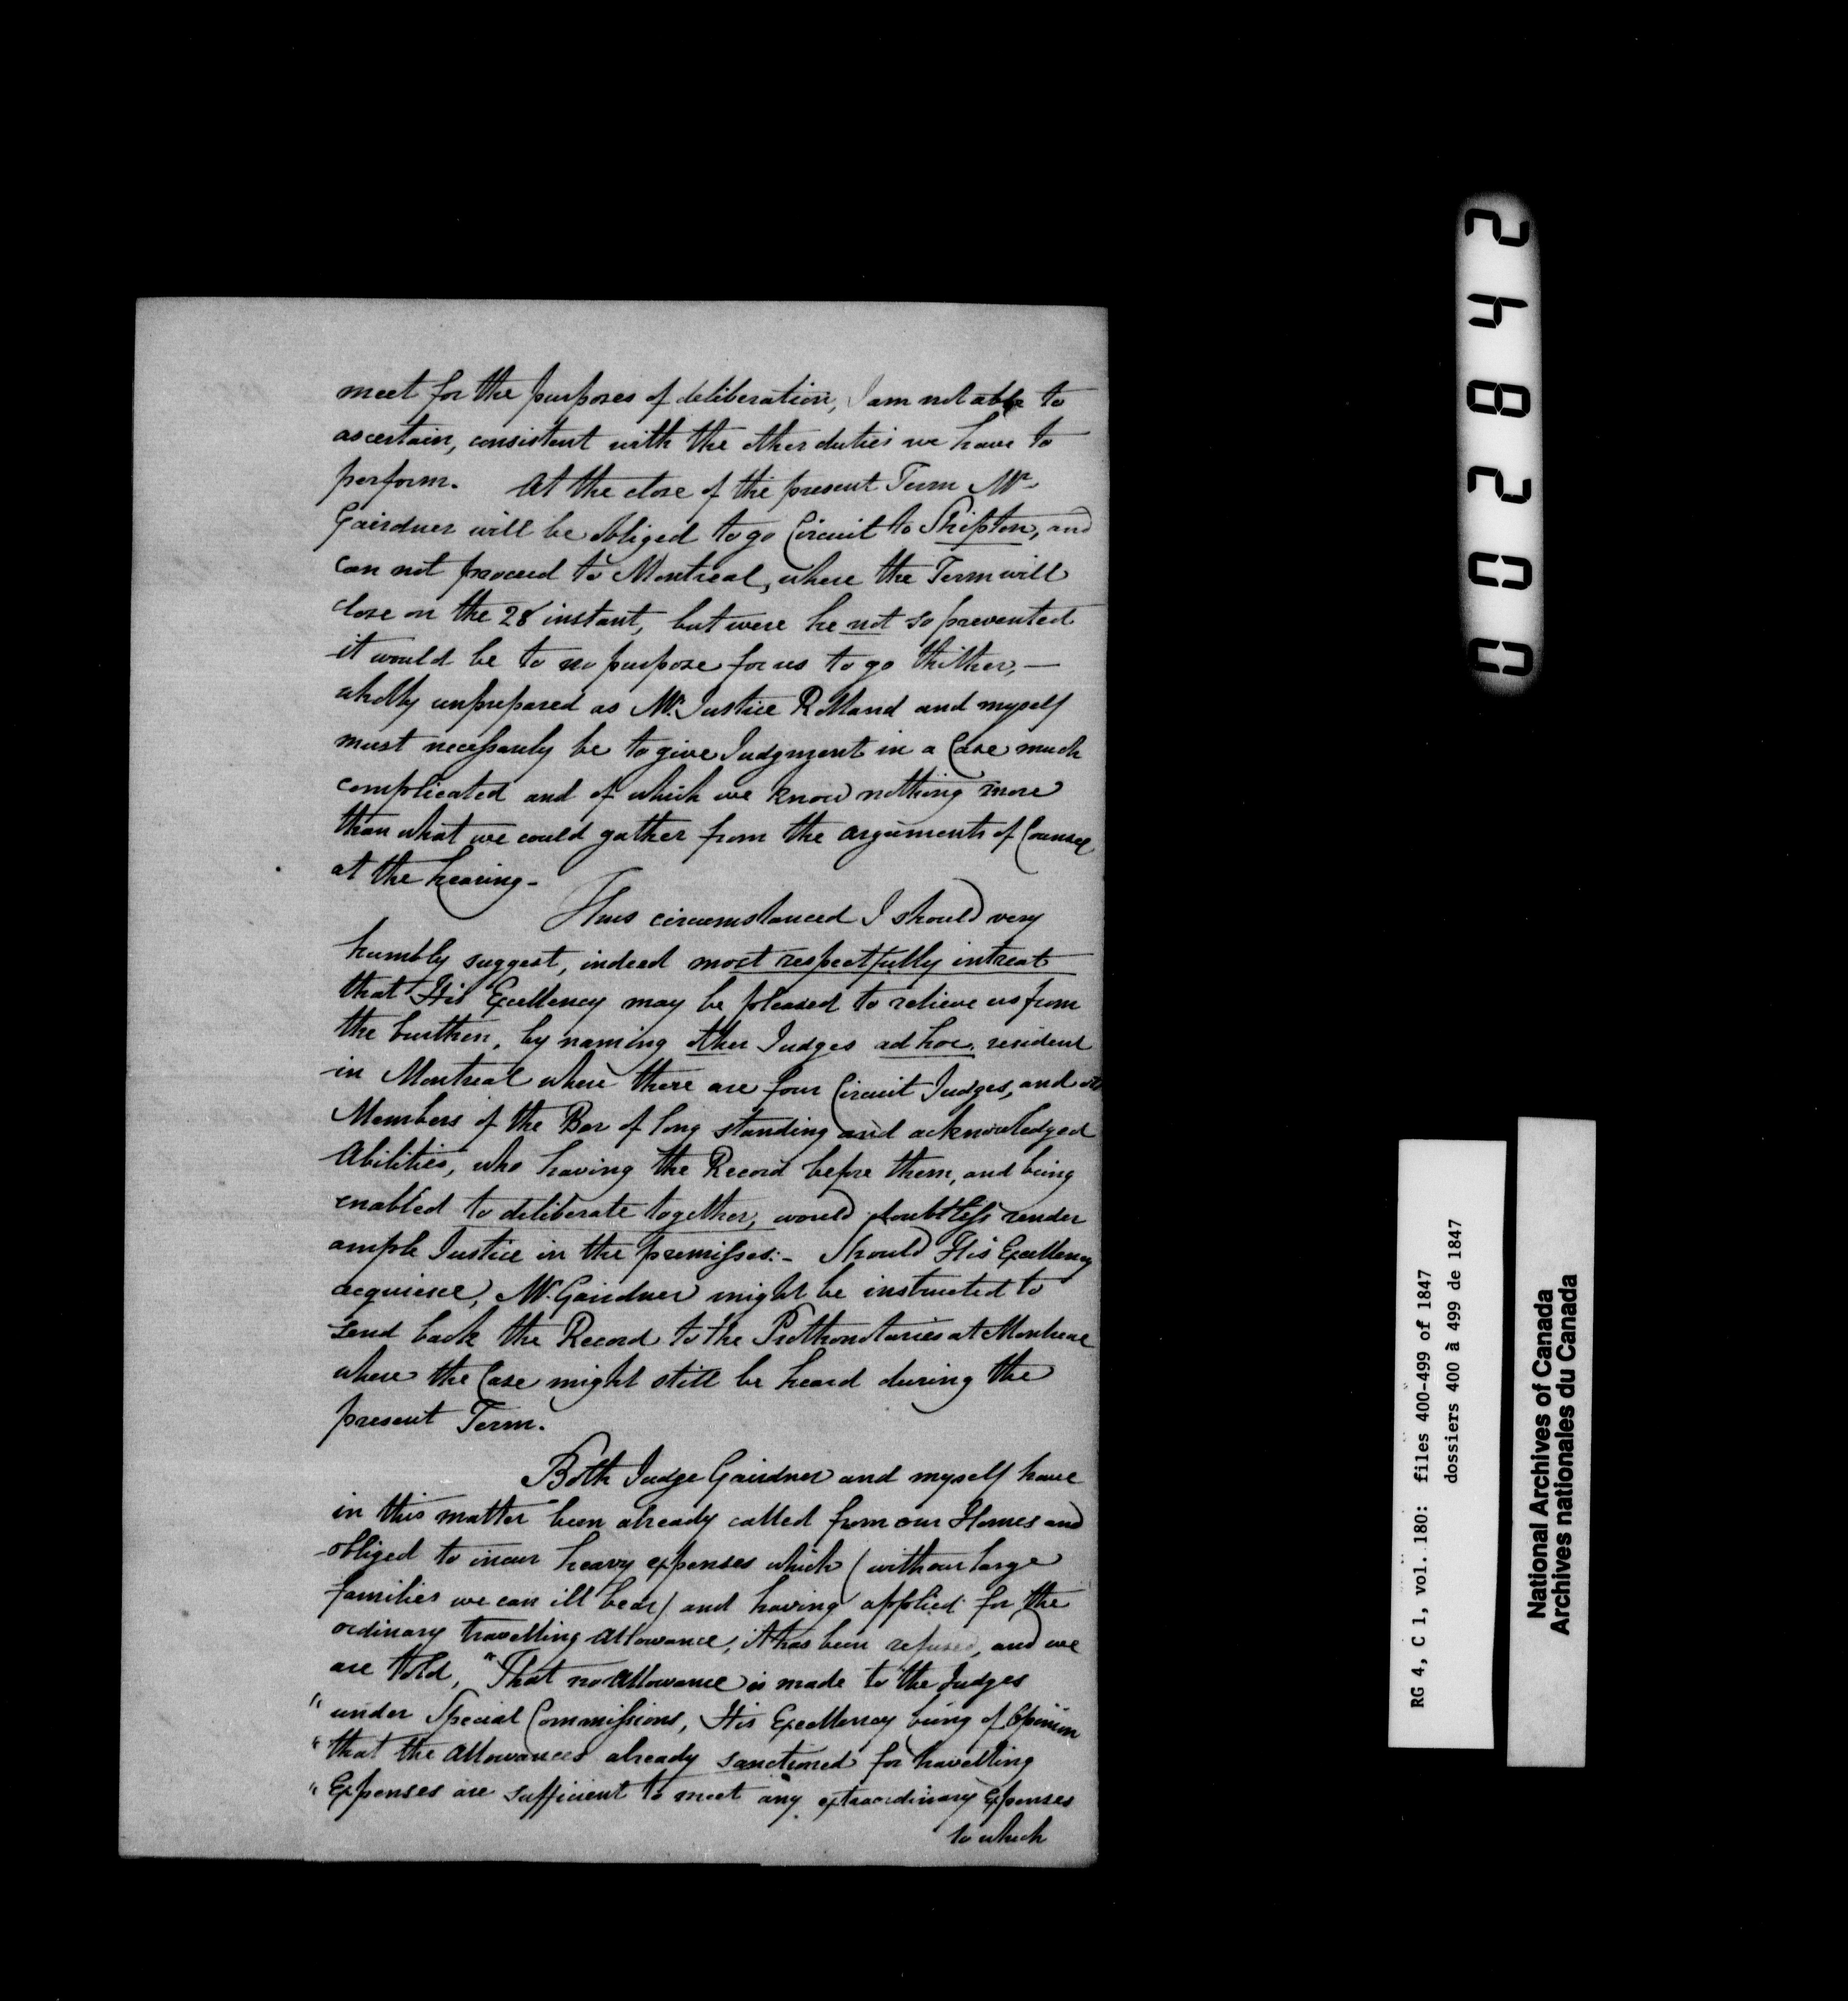 meet for the purposes of deliberation, I am not able to
ascertain, consistent with the other duties we have to
perform. At the close of the present Term Mr.
Gairdner will be obliged to go Circuit to Shipton, and
can not proceed to Montreal, where the Term will
close on the 28 instant, but were he not so prevented
it would be to no purpose for us to go thither, —
wholly unprepared as Mr. Justice Rolland and myself
must necessarily be to give Judgment in a Case much
complicated and of which we know nothing more
than what we could gather from the arguments of Counsel
at the hearing -
Thus circumstanced I should very
humbly suggest, indeed most respectfully intreat
that His Excellency may be pleased to relieve us from
the burthen, by naming other Judges ad hoc, resident
in Montreal where there are four Circuit Judges, and
Members of the Bar of long standing and acknowledged
Abilities, who having the Record before them, and being
enabled to deliberate together, would doubtless render
ample Justice in the premisses: - Should His Excellency
acquiesce, Mr. Gairdner might be instructed to
send back the Record to the Prothonotaries at Montreal
where the Case might still be heard during the
present Term.
Both Judge Gairdner and myself have
in this matter been already called from our Homes and
obliged to incur heavy expenses which (with our large
families we can ill bear) and having applied for the
ordinary travelling allowance, it has been refused, and we
are told, "That no allowance is made to the Judges
" under Special Commissions, His Excellency being of Opinion
" that the allowances already sanctioned for travelling
" Expenses are sufficient to meet any extraordinary Expenses
to which
002842
RG 4, C 1, vol. 180: files 400-499 of 1847
dossiers 400 à 499 de 1847
National Archives of Canada
Archives nationales du Canada